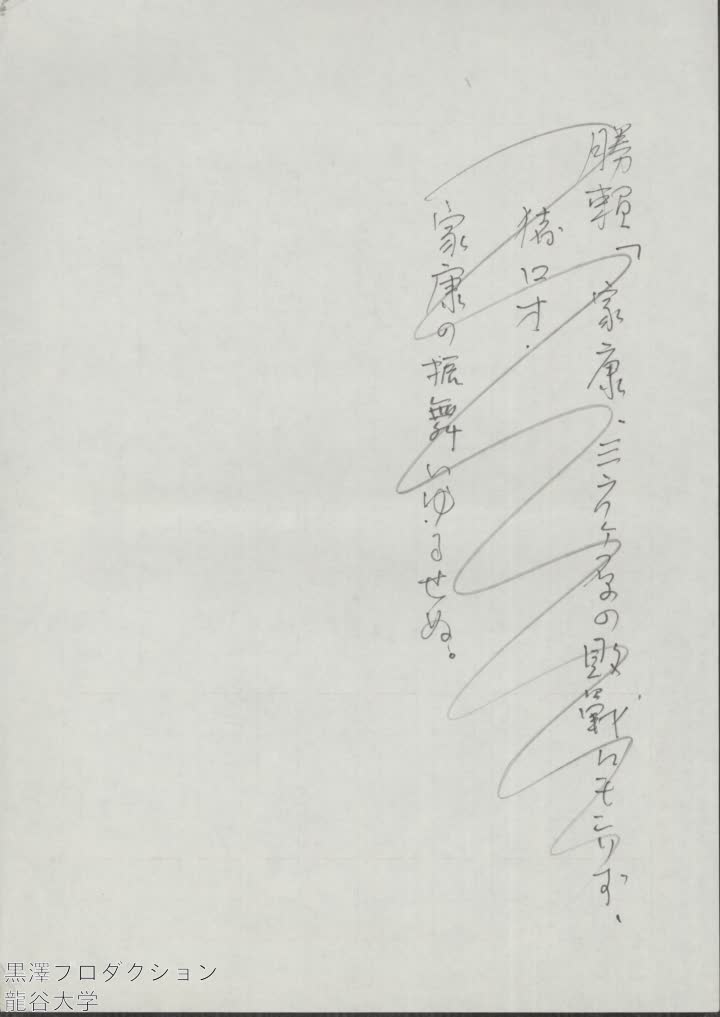 勝頼「家康、三方ケ原の敗戦にもこりず、
猪口才、
家康の振舞いゆるせぬ。
黒澤プロダクション
龍谷大学